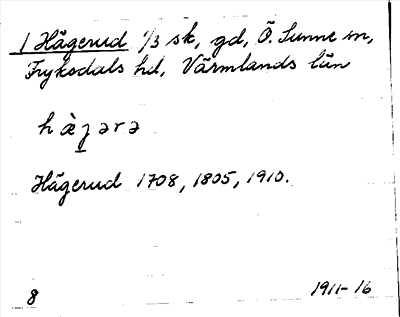 1 Hägerud 1/3 sk, gd, Ö. Sunne sn,
Fryksdals hd, Värmlands län
hàʒərə
Hägerud 1708, 1805, 1910.
8
1911-16